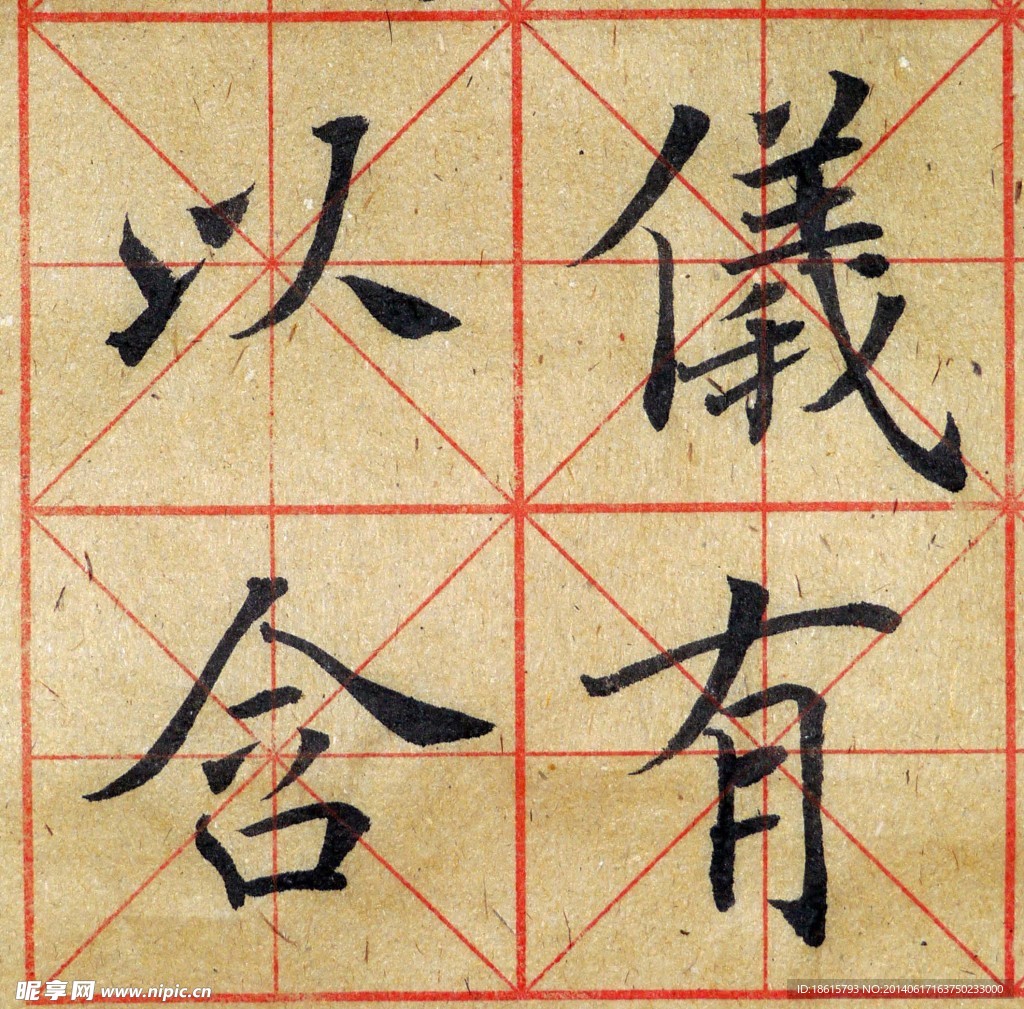 儀有
以含
昵享网 www.nipic.cn
ID:18615793 NO:20140617163750233000